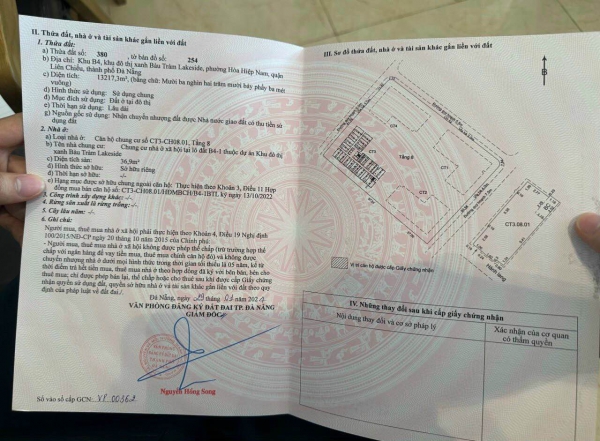 II. Thửa đất, nhà ở và tài sản khác gắn liền với đất
1. Thửa đất:
a) Thửa đất số: 380 , tờ bản đồ số: 254
b) Địa chỉ: Khu B4, khu đô thị xanh Bàu Tràm Lakeside, phường Hòa Hiệp Nam, quận
Liên Chiểu, thành phố Đà Nẵng
c) Diện tích: 13217,3m², (bằng chữ: Mười ba nghìn hai trăm mười bảy phẩy ba mét
vuông)
d) Hình thức sử dụng: Sử dụng chung
đ) Mục đích sử dụng: Đất ở tại đô thị
e) Thời hạn sử dụng: Lâu dài
g) Nguồn gốc sử dụng: Nhận chuyển nhượng đất được Nhà nước giao đất có thu tiền sử
dụng đất
2. Nhà ở:
a) Loại nhà ở: Căn hộ chung cư số CT3-CH08.01, Tầng 8
b) Tên nhà chung cư: Chung cư nhà ở xã hội tại lô đất B4-1 thuộc dự án Khu đô thị
xanh Bàu Tràm Lakeside
c) Diện tích sàn: 36,9m²
d) Hình thức sở hữu: Sở hữu riêng
đ) Thời hạn sở hữu: -/-
e) Hạng mục được sở hữu chung ngoài căn hộ: Thực hiện theo Khoản 3, Điều 11 Hợp
đồng mua bán căn hộ số: CT3-CH08.01/HĐMBCH/B4-1BTL ký ngày 13/10/2022.
3. Công trình xây dựng khác: -/-
4. Rừng sản xuất là rừng trồng: -/-
5. Cây lâu năm: -/-
6. Ghi chú:
Người mua, thuê mua nhà ở xã hội phải thực hiện theo Khoản 4, Điều 19 Nghị định
100/2015/NĐ-CP ngày 20 tháng 10 năm 2015 của Chính phủ:
- Người mua, thuê mua nhà ở xã hội không được phép thế chấp (trừ trường hợp thế
chấp với ngân hàng để vay tiền mua, thuê mua chính căn hộ đó) và không được
chuyển nhượng nhà ở dưới mọi hình thức trong thời gian tối thiểu là 05 năm, kể từ
thời điểm trả hết tiền mua, thuê mua nhà ở theo hợp đồng đã ký với bên bán, bên cho
thuê mua; chỉ được phép bán lại, thế chấp hoặc cho thuê sau khi được cấp Giấy chứng
nhận quyền sử dụng đất, quyền sở hữu nhà ở và tài sản khác gắn liền với đất theo quy
định của pháp luật về đất đai./.
Đà Nẵng, ngày 29 tháng 01 năm 2024
VĂN PHÒNG ĐĂNG KÝ ĐẤT ĐAI TP. ĐÀ NẴNG
GIÁM ĐỐC
Nguyễn Hồng Song
Số vào sổ cấp GCN: VP 00362
III. Sơ đồ thửa đất, nhà ở và tài sản khác gắn liền với đất
B
CT4
CT3
Tầng 8
CT2
CT1
CT3.08.01
Hành lang
Vị trí căn hộ được cấp Giấy chứng nhận
IV. Những thay đổi sau khi cấp giấy chứng nhận
Nội dung thay đổi và cơ sở pháp lý
Xác nhận của cơ quan
có thẩm quyền